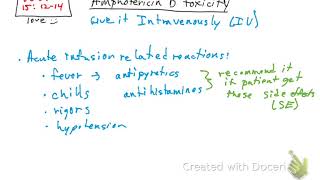 15-12-14
love
Amphotericin B toxicity
Give it Intravenously (IV)
• Acute infusion related reactions:
• fever → antipyretics
• chills antihistamines
recommend it
if patient get
these side effects
(SE)
• rigors
• hypotension
Created with Doceri